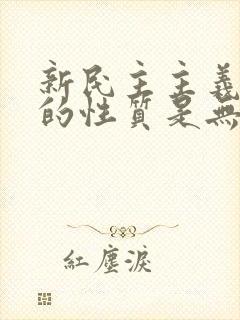 新民主主義
的性質是無
紅塵淚